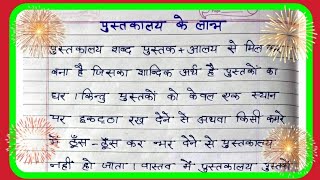 पुस्तकालय के लाभ
पुस्तकालय शब्द पुस्तक + आलय से मिल
बना है जिसका शाब्दिक अर्थ है पुस्तकों का
घर। किन्तु पुस्तकों को केवल एक स्थान
पर इकट्ठा रख देने से अथवा किसी कमरे
में ठूँस-ठूँस कर भर देने से पुस्तकालय
नहीं हो जाता। वास्तव में पुस्तकालय